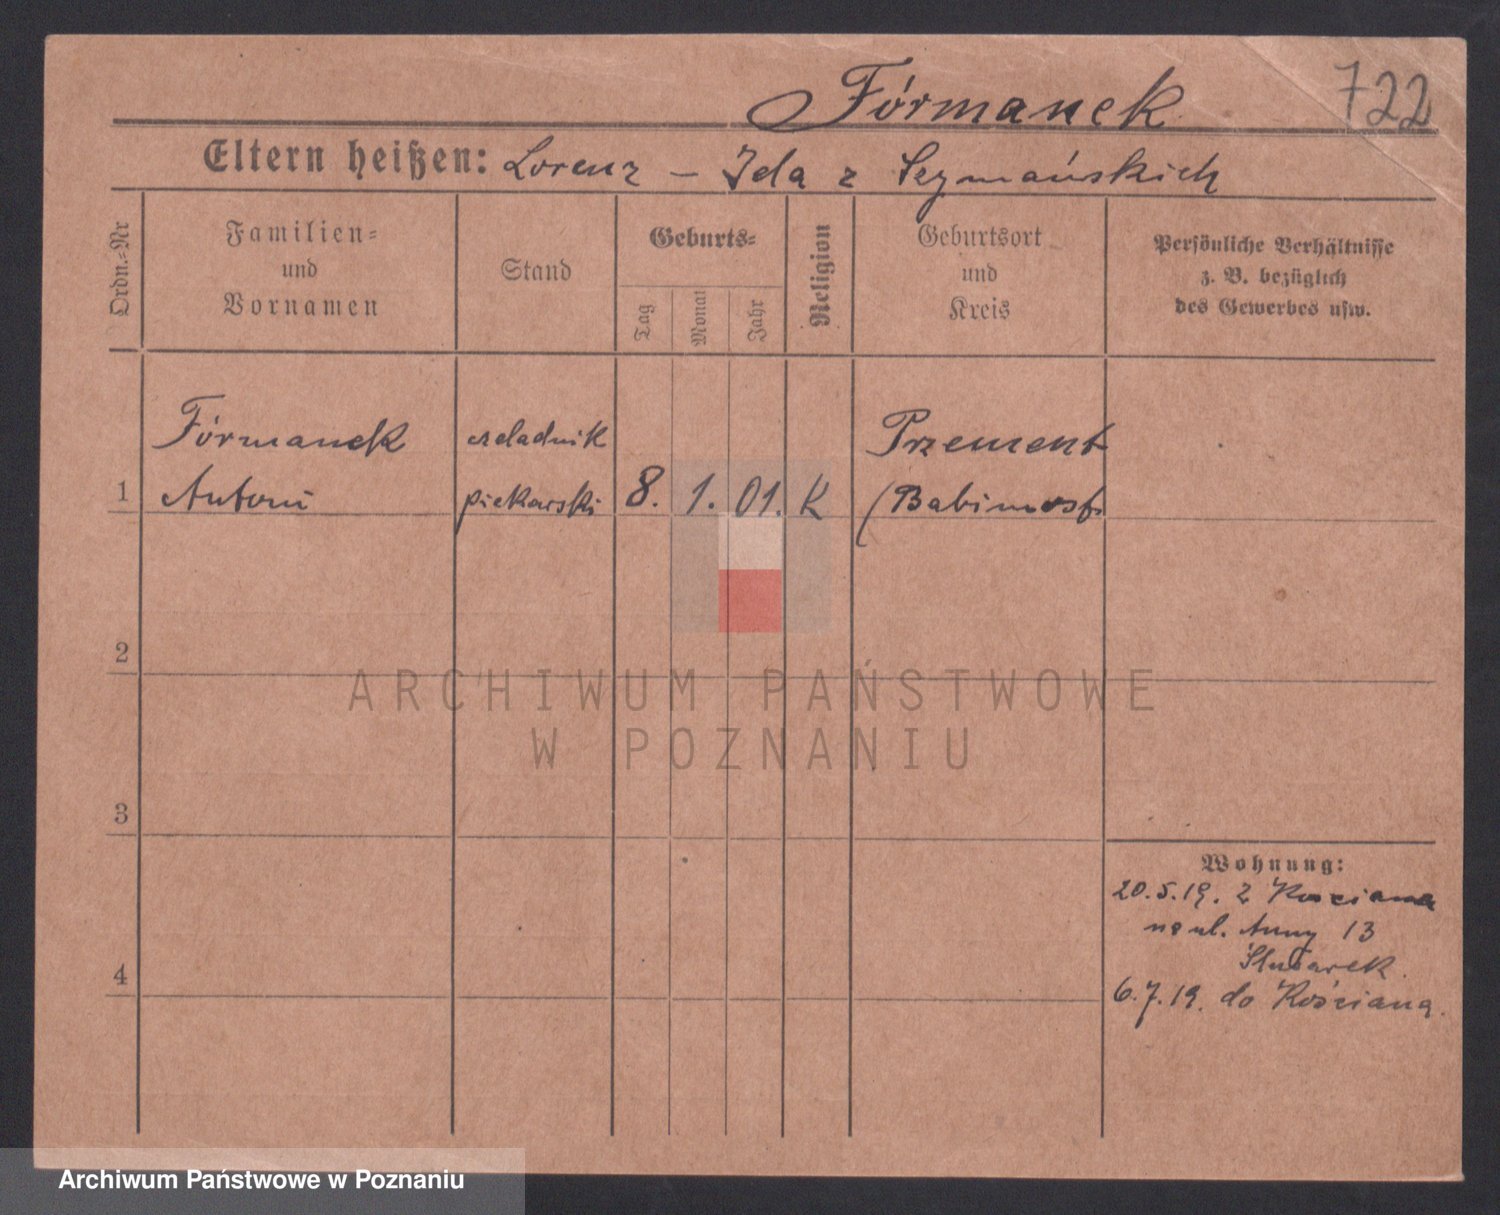 Fórmanek
722
Eltern heißen: Lorenz – Ida z Szymańskich
Ordn.-Nr
Familien-
und
Vornamen
Stand
Geburts-
Tag
Monat
Jahr
Religion
Geburtsort
und
Kreis
Persönliche Verhältnisse
z. B. bezüglich
des Gewerbes usw.
1
Fórmanek
Antoni
czeladnik
piekarski
8. 1. 01. K
Przement
(Babimost
2
ARCHIWUM PAŃSTWOWE
W POZNANIU
3
Wohnung:
20.5.19. z Kościana
na ul. Anny 13
Ślusarek
6.7.19. do Kościana.
4
Archiwum Państwowe w Poznaniu